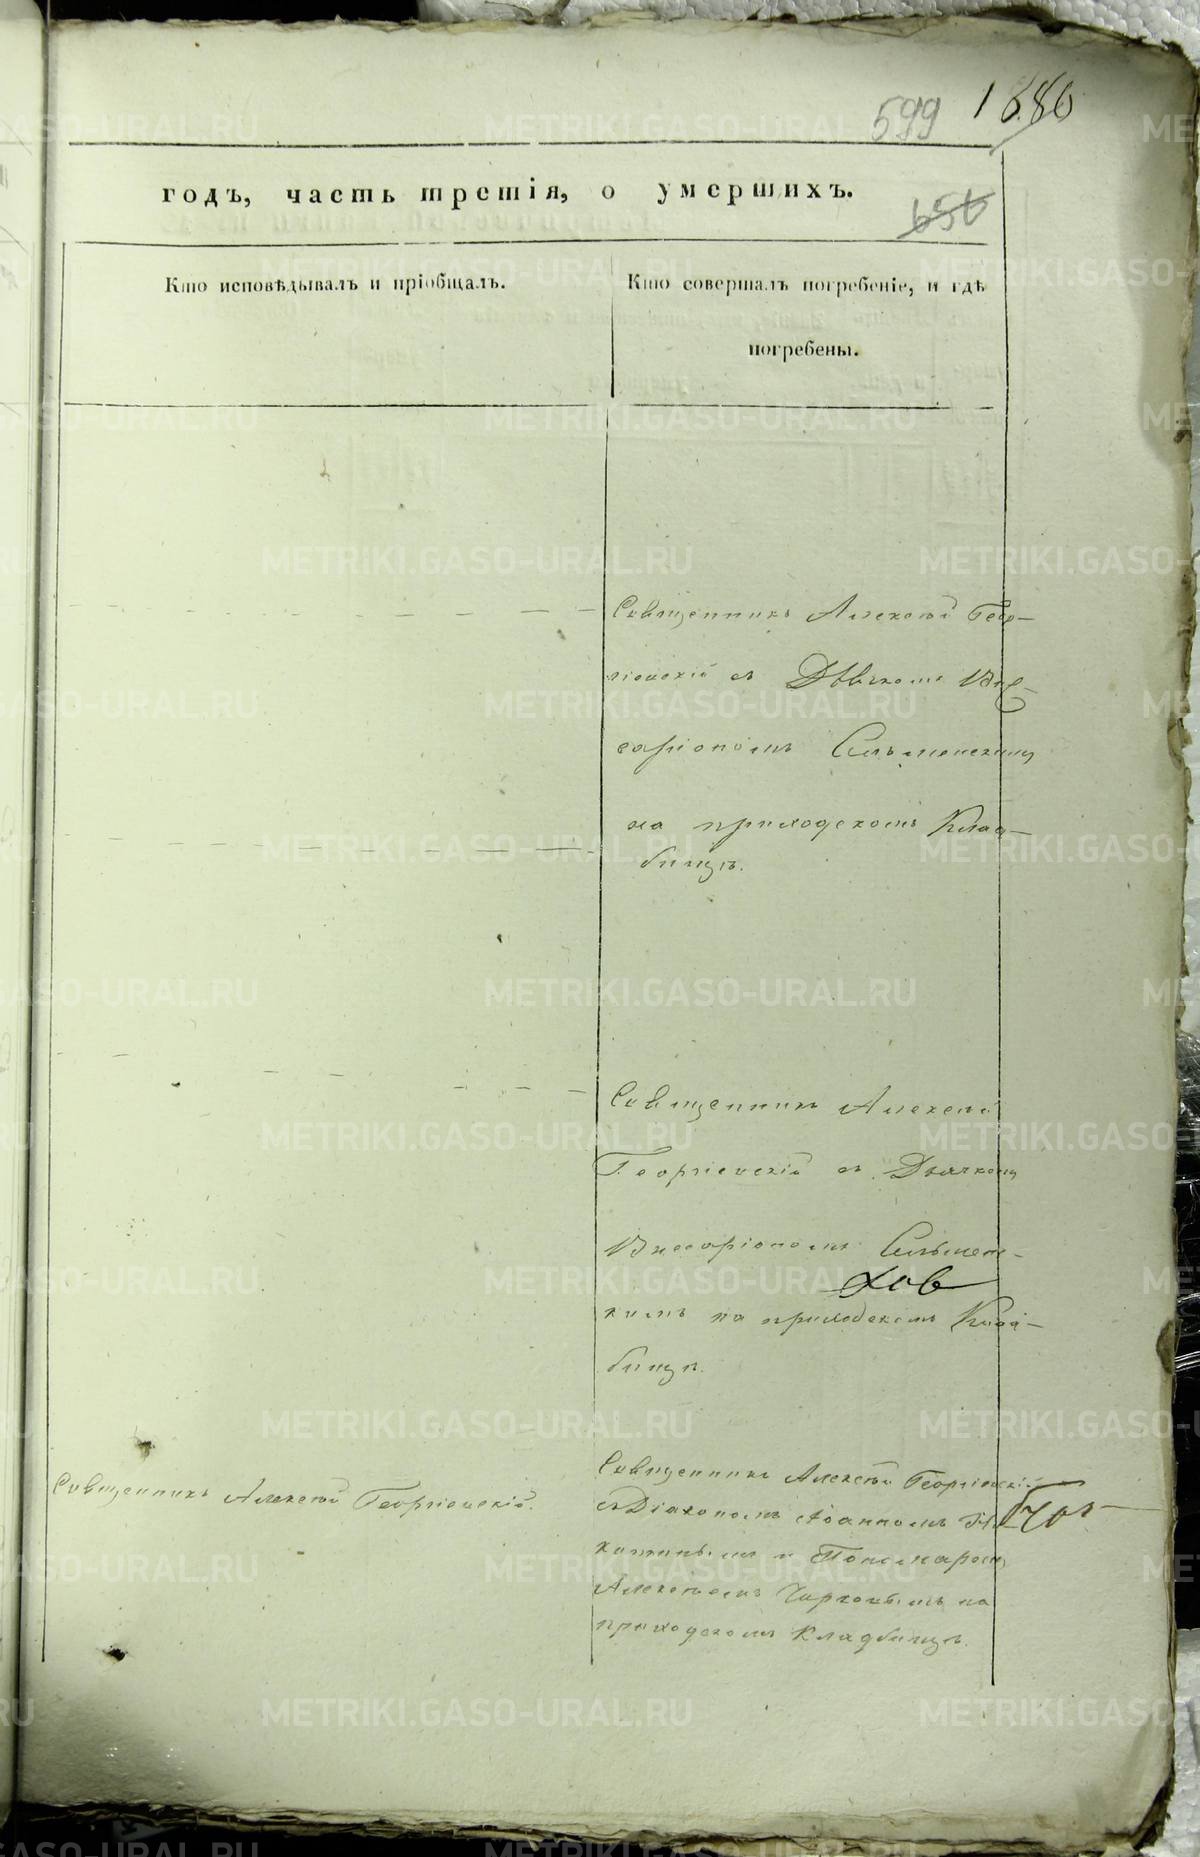 599 1886
годъ, часть третія, о умершихъ.
656
Кто исповѣдывалъ и пріобщалъ.
Кто совершалъ погребеніе, и гдѣ
погребены.
Священникъ Алексѣй Геор-
гіевскій съ Дьячкомъ Вис-
саріономъ
на приходскомъ Клад-
бищѣ.
Священникъ Алексѣй
Георгіевскій съ Дьячкомъ
Висаріономъ
кимъ на приходскомъ Клад-
бищѣ.
Священникъ Алексѣй Георгіевскій.
Священникъ Алексѣй Георгіевскій
съ Діакономъ Іоанномъ Ни-
китинымъ и Пономаремъ
Алексѣемъ на
приходскомъ Кладбищѣ.
METRIKI.GASO-URAL.RU